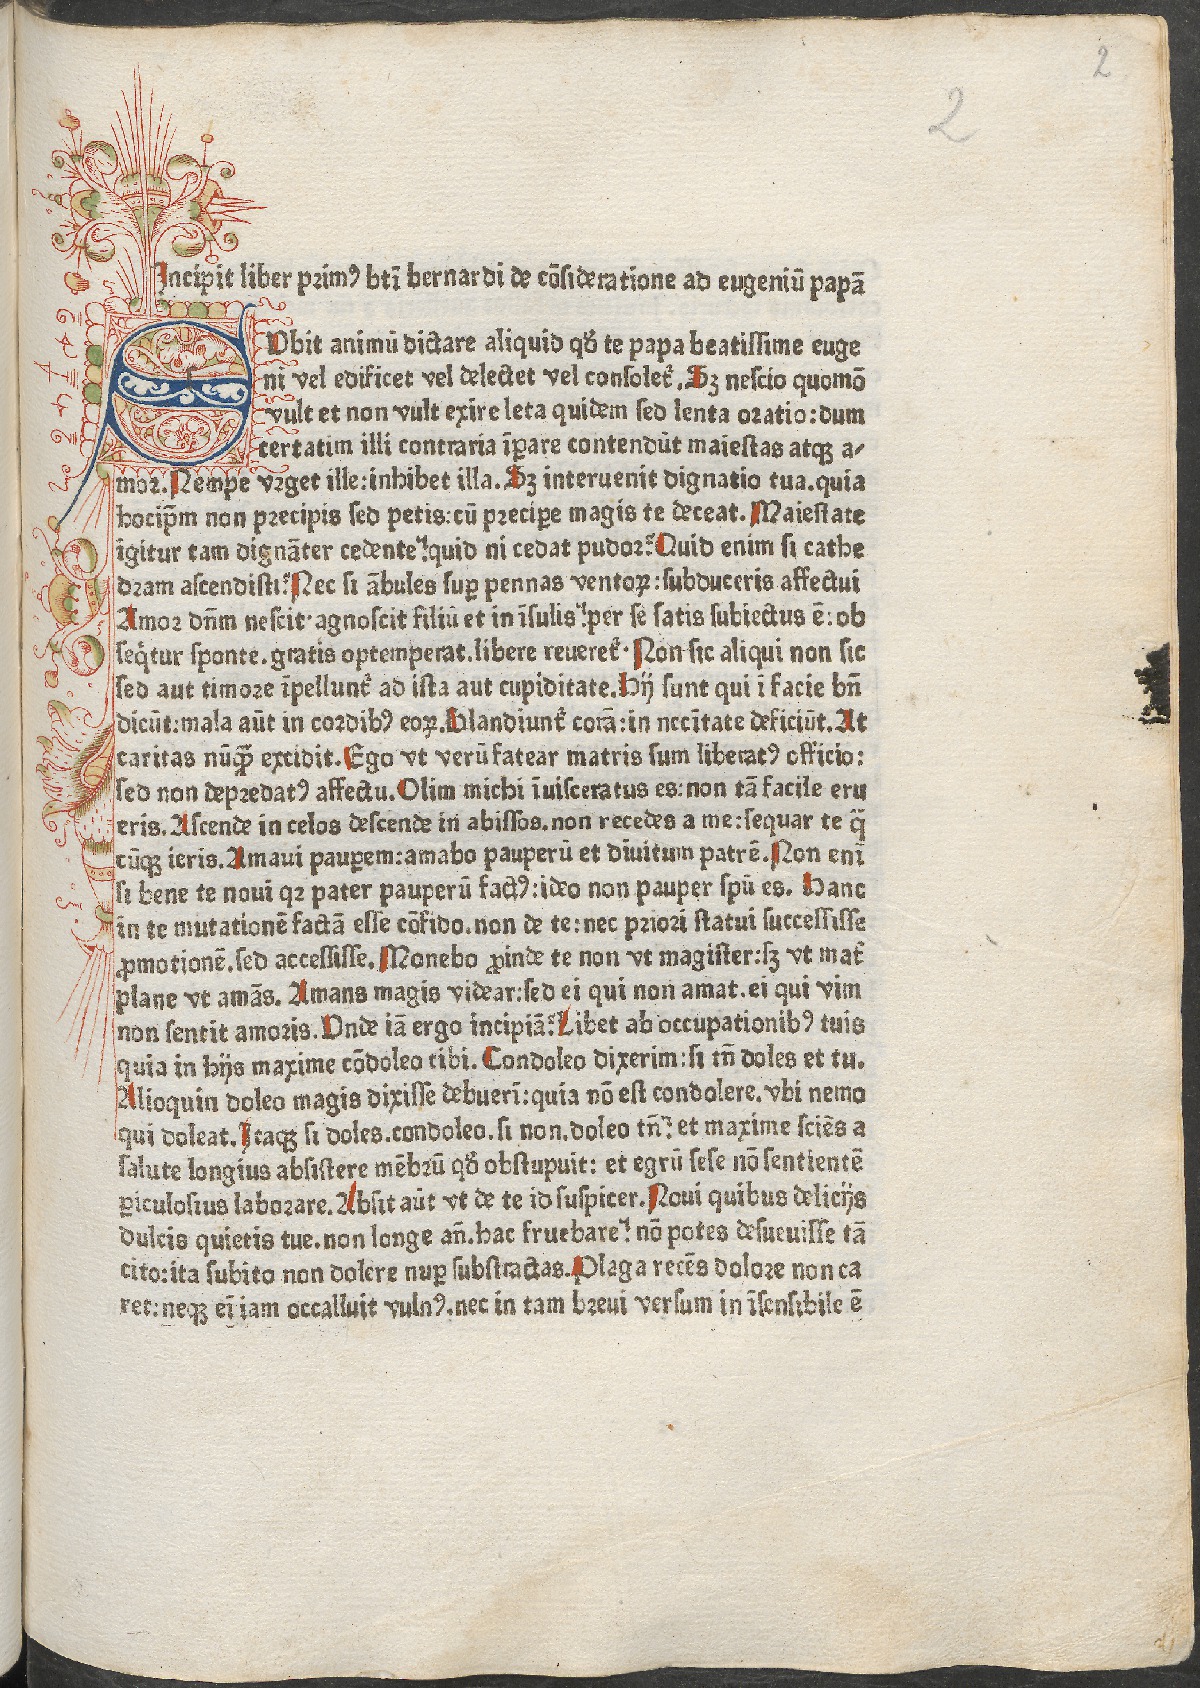 2
2
Incipit liber primꝰ bti̅ bernardi de co̅sideratione ad eugeniu̅ papa̅
SVbit animu̅ dictare aliquid qđ te papa beatissime euge
ni vel edificet vel delectet vel consolet᷑. Sꝫ nescio quomo̅
vult et non vult exire leta quidem sed lenta oratio: dum
certatim illi contraria i̅ꝑare contendu̅t maiestas atqꝫ a⸗
mor. Nempe vrget ille: inhibet illa. Sꝫ interuenit dignatio tua. quia
hocip̅m non precipis sed petis: cu̅ preciꝑe magis te deceat. Maiestate
i̅gitur tam digna̅ter cedente? quid ni cedat pudor? Quid enim si cathe
dram ascendisti? Nec si a̅bules suꝑ pennas ventoꝝ: subduceris affectui
Amor dn̅m nescit· agnoscit filiu̅ et in i̅sulis? per se satis subiectus e̅: ob
seq̅tur sponte. gratis optemperat. libere reueret᷑· Non sic aliqui non sic
sed aut timore i̅pellunt᷑ ad ista aut cupiditate. Hij sunt qui i̅ facie bn̅
dicu̅t: mala au̅t in cordibꝰ eoꝝ. Blandiunt᷑ cora̅: in ncci̅tate deficiu̅t. At
caritas nu̅qꝫ̅ excidit. Ego vt veru̅ fatear matris sum liberatꝰ officio:
sed non depredatꝰ affectu. Olim michi i̅uisceratus es: non ta̅ facile eru
eris. Ascende in celos descende in abissos. non recedes a me: sequar te q̅
cu̅qꝫ ieris. Amaui pauꝑem: amabo pauperu̅ et di̅uitum patre̅. Non eni̅
si bene te noui qꝛ pater pauperu̅ factꝰ: ideo non pauper spu̅ es. Hanc
in te mutatione̅ facta̅ esse co̅fido. non de te: nec priori statui successisse
ꝓmotione̅. sed accessisse. Monebo ꝓinde te non vt magister: sꝫ vt mat᷑
plane vt ama̅s. Amans magis videar: sed ei qui non amat. ei qui vim
non sentit amoris. Vnde ia̅ ergo incipia̅? Libet ab occupationibꝰ tuis
quia in hijs maxime co̅doleo tibi. Condoleo dixerim: si tn̅ doles et tu.
Alioquin doleo magis dixisse debueri̅: quia no̅ est condolere. vbi nemo
qui doleat. Itaqꝫ si doles. condoleo. si non. doleo tn̅? et maxime scie̅s a
salute longius absistere me̅bru̅ qđ obstupuit: et egru̅ sese no̅ sentiente̅
ꝑiculosius laborare. Absit au̅t vt de te id suspicer. Noui quibus delicijs
dulcis quietis tue. non longe an̅. hac fruebare? no̅ potes desueuisse ta̅
cito: ita subito non dolere nuꝑ substractas. Plaga rece̅s dolore non ca
ret: neqꝫ ei̅ iam occalluit vulnꝰ. nec in tam breui versum in i̅sensibile e̅